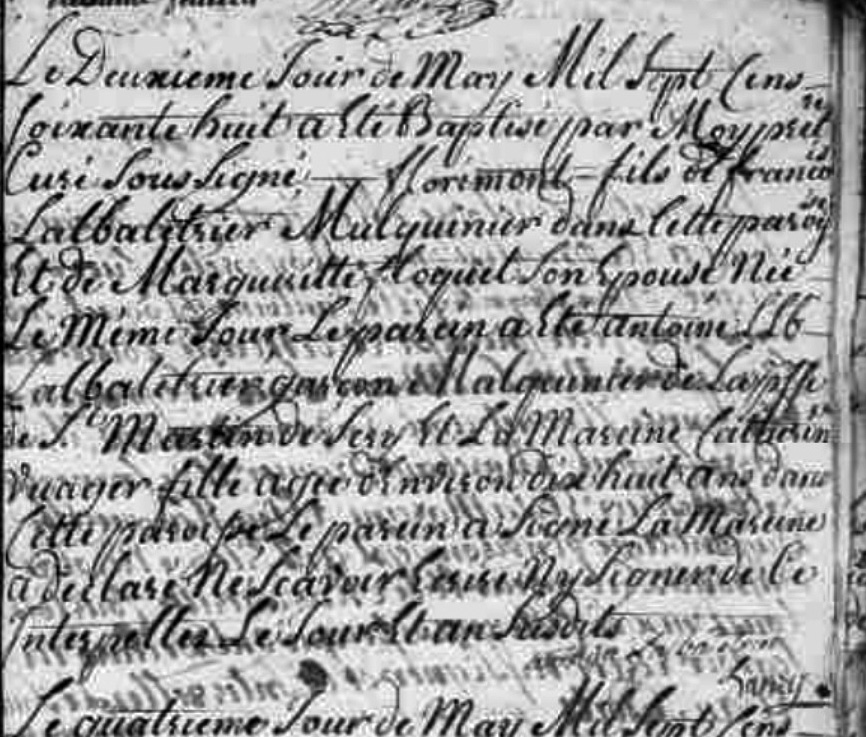 Le Deuxieme Jour de May Mil Sept Cens
Soixante huit a Eté Baptisé par Moy pretre
Curé Sous Signé florimont fils de francois
Lalbaletrier Mulquinier dans Cette paroisse
Et de Margueritte floquet Son Epouse Née
Le Même Jour Le parein a Eté antoine
Lalbaletrier garçon Malquinier de La psse
de St Martin de Sery Et La Mareine Catherine
fille agée d'environ dix huit ans dans
Cette paroisse Le parein a Signé La Mareine
a declaré Ne Scavoir Ecrire Ny Signer de Ce
Interpellez Le Jour Et an Susdits
Le quatrieme Jour de May Mil Sept Cens